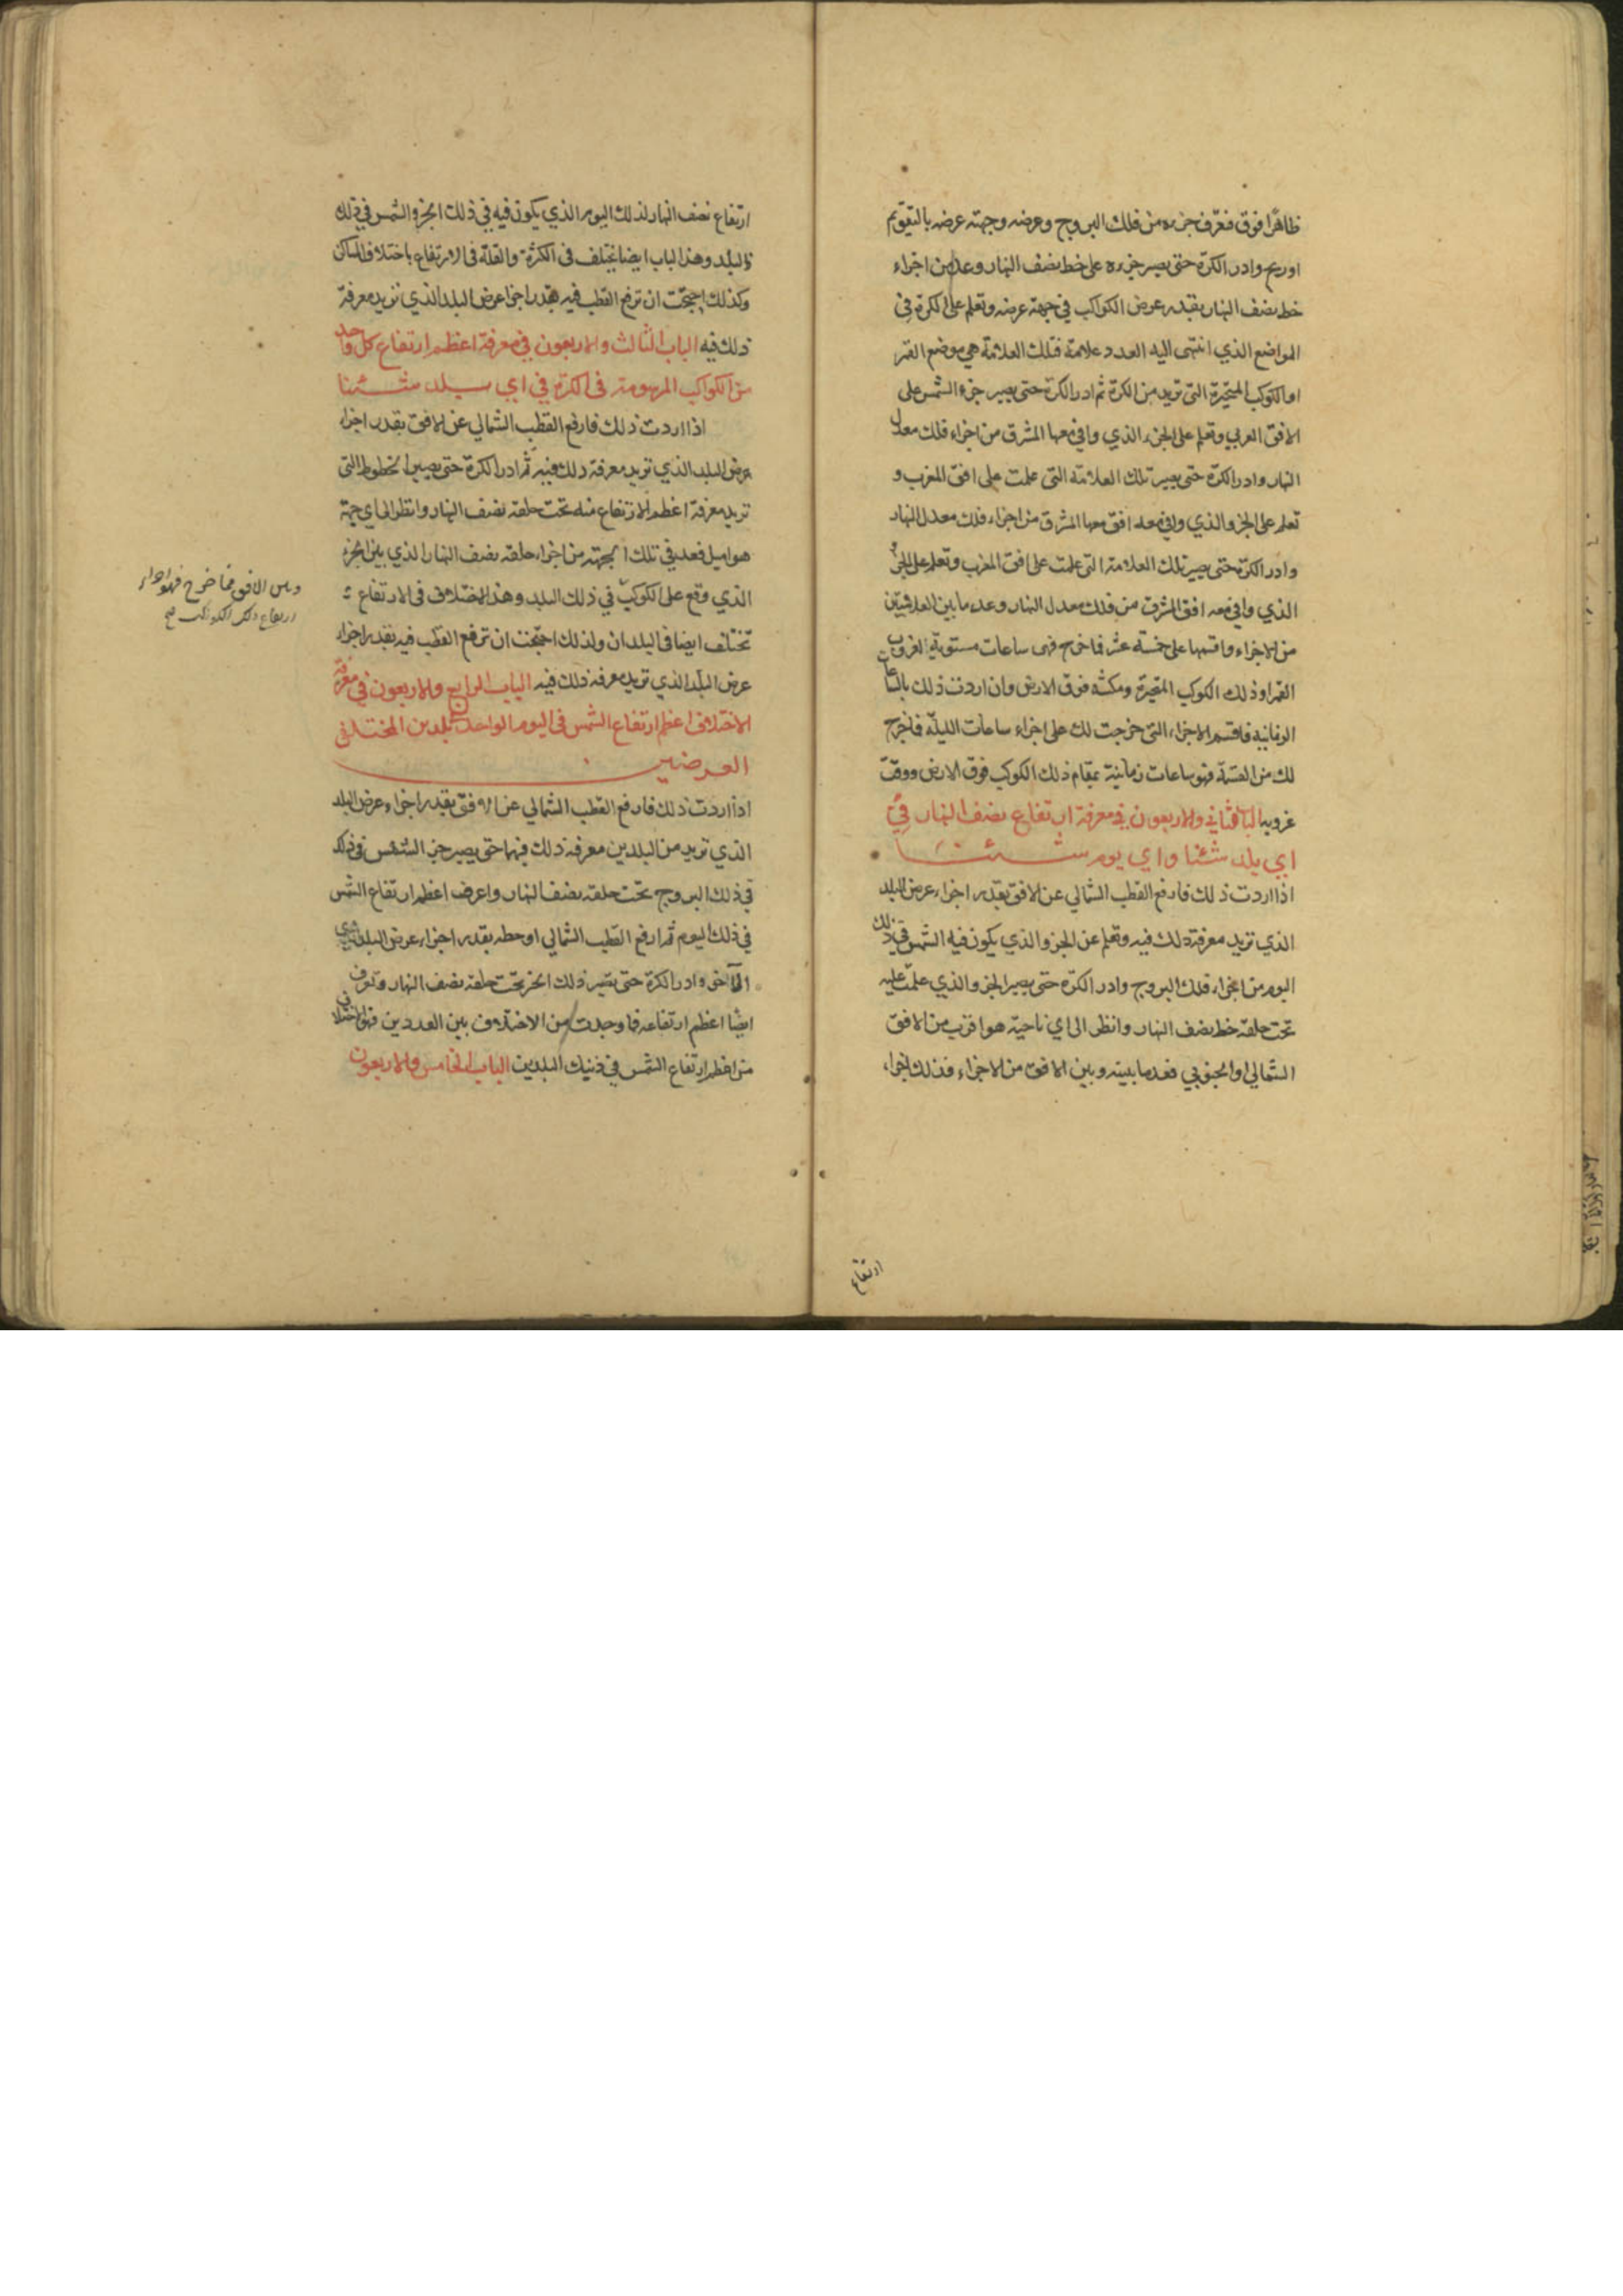 ظاهرًا فوق فتعرّف جزءه من فلك البروج وعرضه وجهة عرضه بالتقويم
او زيج وادر الكرة حتى يصير جزءه على خط نصف النهار وعد من اجزاء
خط نصف النهار بقدر عرض الكواكب في جهة عرضه وتعلم على الكرة في
المواضع الذي انتهى اليه العدد علامة فتلك العلامة هي موضع القمر
او الكوكب المتحيّرة التي تريد من الكرة ثم ادر الكرة حتى يصير جزء الشمس على
الافق الغربي وتعلم على الجزء الذي وافى معها المشرق من اجزاء فلك معدل
النهار وادر الكرة حتى يصير تلك العلامة التي علمت على افق المغرب و
تعلم على الجزو الذي وافى معه افق معها المشرق من اجزاء فلك معدل النهار
وادر الكرة حتى يصير تلك العلامة التي علمت على افق المغرب وتعلم على الجزء
الذي وافى معه افق المشرق من فلك معدل النهار وعد ما بين العلامتين
من الاجزاء واقسمها على خمسة عشر فما خرج فهى ساعات مستوية لغروب
القمر او ذلك الكوكب المتحيرة ومكثه فوق الارض وان اردت ذلك بالساعات
الزمانية فاقسم الاجزاء التي خرجت لك على اجزاء ساعات الليلة فما خرج
لك من القسمة فهو ساعات زمانية بمقام ذلك الكوكب فوق الارض ووقت
غروبه الباب الثاني والاربعون في معرفة ارتفاع نصف النهار في
اي بلد شئنا واي يوم شئنا
اذا اردت ذلك فارفع القطب الشمالي عن الافق بقدر اجزاء عرض البلد
الذي تريد معرفة ذلك فيه وتعلم عن الجزو الذي يكون فيه الشمس في ذلك
اليوم من اجزاء فلك البروج وادر الكرة حتى يصير الجزو الذي علمت عليه
تحت حلقة خط نصف النهار وانظر الى اي ناحية هو اقرب من الافق
الشمالي او الجنوبي فعد ما بينه وبين الافق من الاجزاء فذلك اجزاء
ارتفاع
ارتفاع نصف النهار لذلك اليوم الذي يكون فيه في ذلك الجزو الشمس في ذلك
البلد وهذا الباب ايضا يختلف في الكثرة والقلة في الارتفاع باختلاف المساكن
وكذلك احتجت ان ترفع القطب فيه بقدر اجزا عرض البلد الذي تريد معرفة
ذلك فيه الباب الثالث والاربعون في معرفة اعظم ارتفاع كل واحد
من الكواكب المرسومة في الكرة في اي بلد شئنا
اذا اردت ذلك فارفع القطب الشمالي عن الافق بقدر اجزاء
عرض البلد الذي تريد معرفة ذلك فيه ثم ادر الكرة حتى يصير الخطوط التي
تريد معرفة اعظم الارتفاع منه تحت حلقة نصف النهار وانظر الى اي جهة
هو اميل فعد في تلك الجهة من اجزاء حلقة نصف النهار الذي بين الجزء
الذي وقع على الكوكب في ذلك البلد وهذا الاختلاف في الارتفاع
تختلف ايضا في البلدان ولذلك احتجت ان ترفع القطب فيه بقدر اجزاء
عرض البلد الذي تريد معرفة ذلك فيه الباب الرابع والاربعون في معرفة
الاختلاف اعظم ارتفاع الشمس في اليوم الواحد لبلدين المختلفي
العرضين
اذا اردت ذلك فارفع القطب الشمالي عن الافق بقدر اجزاء عرض البلد
الذي تريد من البلدين معرفة ذلك فيهما حتى يصير جزء الشمس في ذلك
في ذلك البروج تحت حلقة نصف النهار واعرف اعظم ارتفاع الشمس
في ذلك اليوم ثم ارفع القطب الشمالي او حطه بقدر اجزاء عرض البلد
الآخر وادر الكرة حتى يصير ذلك الجزء تحت حلقة نصف النهار وتعرف
ايضًا اعظم ارتفاعه فما وجدت من الاختلاف بين العددين فهو اختلاف
من اعظم ارتفاع الشمس في ذينك البلدين الباب الخامس والاربعون
وبين الافق فما خرج فهو اجزاء
ارتفاع ذلك الكوكب صح